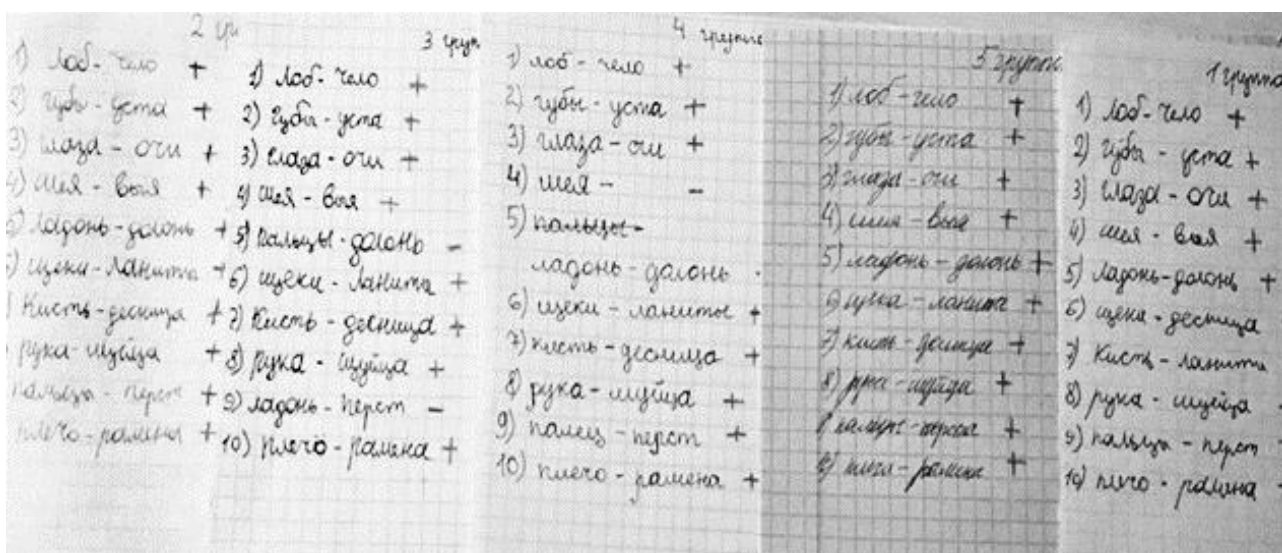 2 гр.
1) Лоб - чело +
2) губы - уста +
3) глаза - очи +
4) шея - выя +
5) ладонь - долонь +
6) щеки - ланита +
Кисть - десница +
рука - шуйца +
пальцы - перст +
плечо - рамена +
3 груп
1) Лоб - чело +
2) Губы - уста +
3) глаза - очи +
4) шея - выя +
5) Пальцы - долонь -
6) щеки - ланита +
7) Кисть - десница +
8) рука - шуйца +
9) ладонь - перст -
10) плечо - рамена +
4 группа
1) лоб - чело +
2) губы - уста +
3) глаза - очи +
4) шея - -
5) пальцы -
ладонь - долонь -
6) щеки - ланиты +
7) кисть - десница +
8) рука - шуйца +
9) палец - перст +
10) плечо - рамена +
5 группа
1) лоб - чело +
2) губы - уста +
3) глаза - очи +
4) шея - выя +
5) ладонь - долонь +
6) щека - ланита +
7) кисть - десница +
8) рука - шуйца +
пальцы - +
10) плечо - рамена +
1 группа
1) Лоб - чело +
2) губы - уста +
3) глаза - очи +
4) шея - выя +
5) Ладонь - долонь +
6) щеки - десница
7) Кисть - ланита
8) рука - шуйца
9) пальцы - перст
10) плечо - рамена